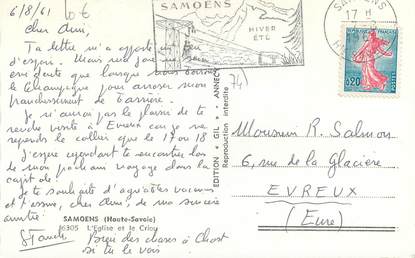 6/8/61
10 €
Cher Ami,
Ta lettre m'a apporté un peu
d'espoir. Mais
que lorsque nous
le champagne pour arroser mon
franchissement de barrière.
Je n'aurai pas le plaisir de te
rendre visite à Evreux car je ne
reprends le collier que le 17 ou 18
J'espère cependant te rencontrer lors
de mon prochain voyage dans la
Je te souhaite d'agréables vacances
et t'assure, cher Ami, de ma sincère
amitié
Bien des choses à
si tu le vois
SAMOENS (Haute-Savoie)
16305 L'Eglise et le Criou
EDITION « GIL » ANNECY
Reproduction interdite
74)
SAMOENS
HIVER
ÉTÉ
SAMOENS
17 H
REPUBLIQUE FRANCAISE
0,20
POSTES
Monsieur R. Salmon
6, rue de la Glacière
EVREUX
(Eure)